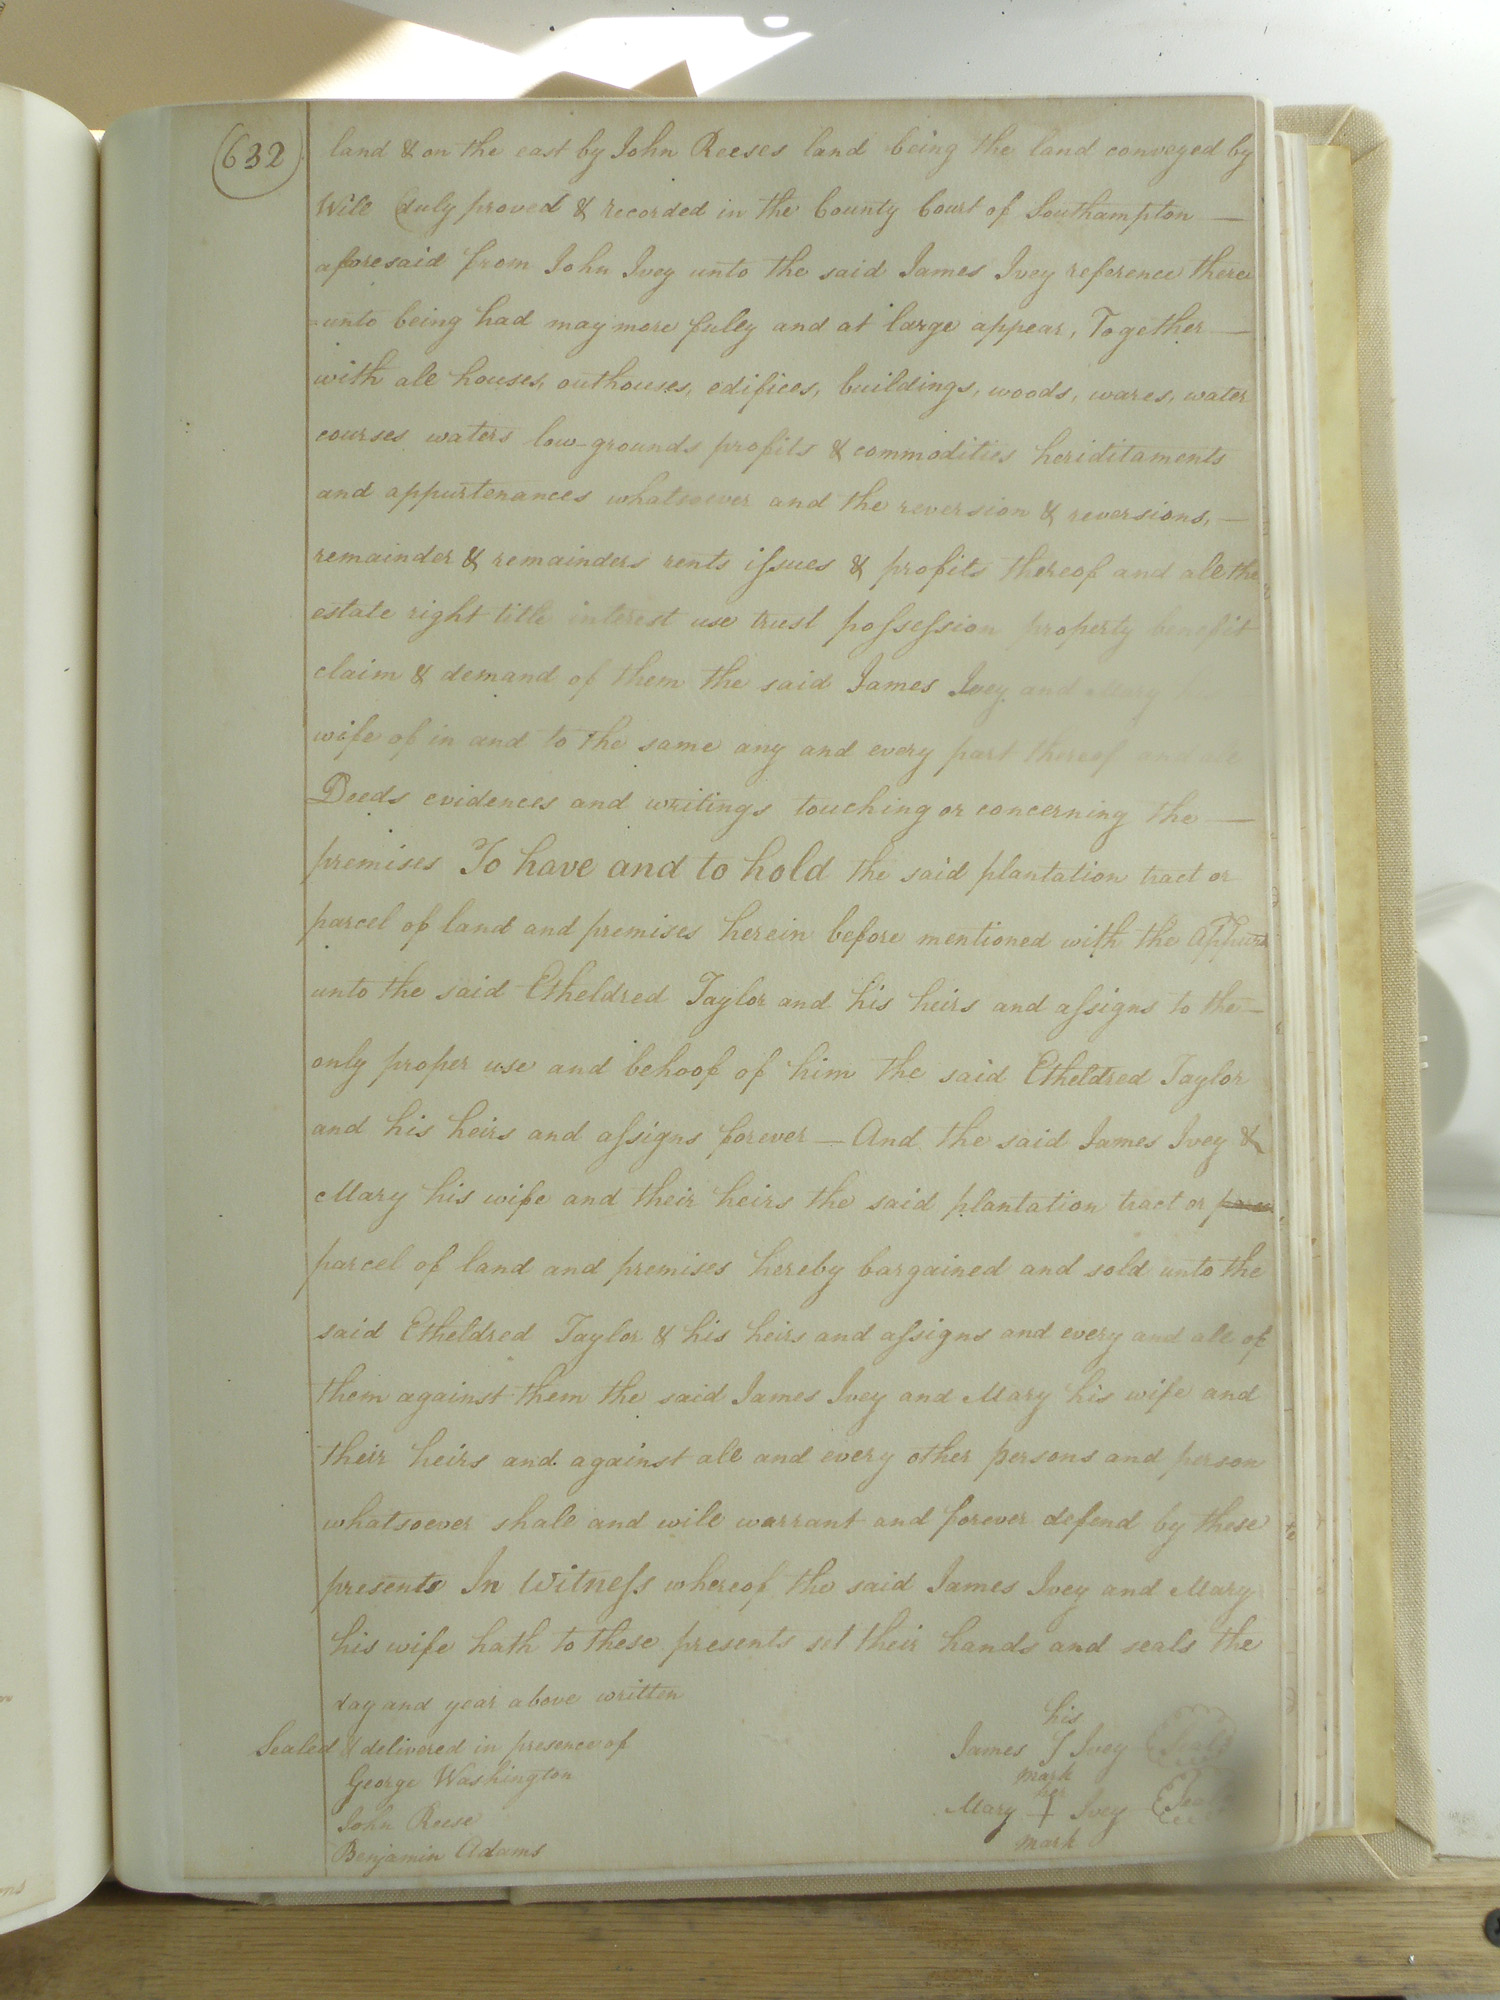 632
land & on the east by John Reeses land being the land conveyed by
Will duly proved & recorded in the County Court of Southampton —
aforesaid from John Ivey unto the said James Ivey reference there
-unto being had may more fully and at large appear, Together —
with all houses, outhouses, edifices, buildings, woods, wares, water
courses waters low-grounds profits & commodities heriditaments
and appurtenances whatsoever and the reversion & reversions, —
remainder & remainders rents issues & profits thereof and all the
estate right title interest use trust possession property benefit
claim & demand of them the said James Ivey and Mary
wife of in and to the same any and every part thereof and all
Deeds evidences and writings touching or concerning the —
premises To have and to hold the said plantation tract or
parcel of land and premises herein before mentioned with the
unto the said Etheldred Taylor and his heirs and assigns to the —
only proper use and behoof of him the said Etheldred Taylor
and his heirs and assigns forever — And the said James Ivey &
Mary his wife and their heirs the said plantation tract or
parcel of land and premises hereby bargained and sold unto the
said Etheldred Taylor & his heirs and assigns and every and all of
them against them the said James Ivey and Mary his wife and
their heirs and against all and every other persons and person
whatsoever shall and will warrant and forever defend by these
presents In Witness whereof the said James Ivey and Mary
his wife hath to these presents set their hands and seals the
day and year above written
Sealed & delivered in presence of
George Washington
John Reese
Benjamin Adams
his
James J Ivey Seal
mark
her
Mary † Ivey Seal
mark